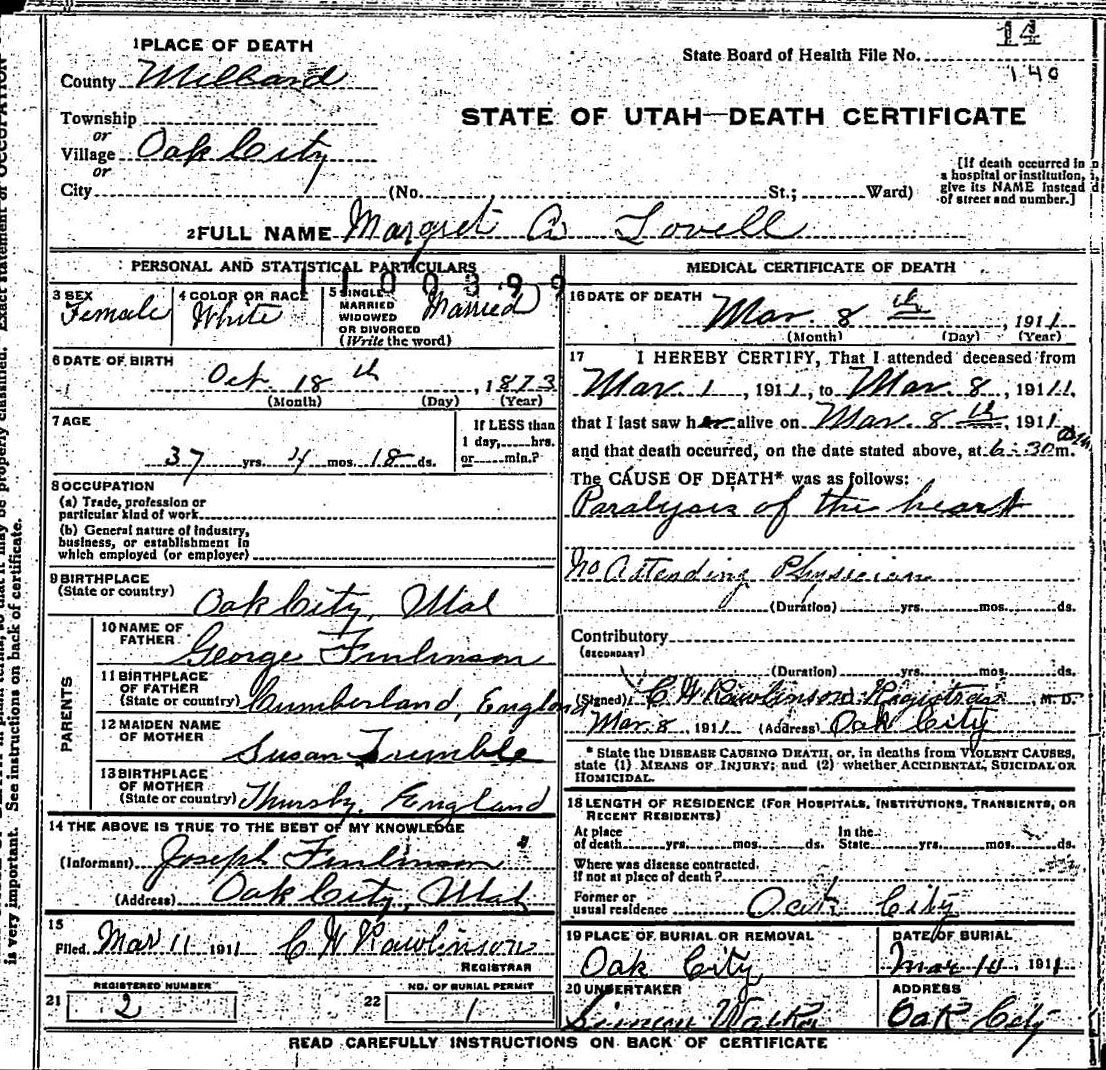 14
140
1 PLACE OF DEATH
State Board of Health File No.
County Millard
STATE OF UTAH—DEATH CERTIFICATE
Township
or
Village Oak City
or
City (No. St.; Ward)
[If death occurred in
a hospital or institution,
give its NAME instead
of street and number.]
2 FULL NAME Margret A Lovell
PERSONAL AND STATISTICAL PARTICULARS
1100399
3 SEX
Female
4 COLOR OR RACE
White
5 SINGLE
MARRIED
WIDOWED
OR DIVORCED
(Write the word)
Married
6 DATE OF BIRTH
Oct. 18 th, 1873
(Month) (Day) (Year)
7 AGE
37 yrs. mos. 18 ds.
If LESS than
1 day, hrs.
or min.?
8 OCCUPATION
(a) Trade, profession or
particular kind of work
(b) General nature of industry,
business, or establishment in
which employed (or employer)
9 BIRTHPLACE
(State or country) Oak City, Utah
PARENTS
10 NAME OF
FATHER George Finlinson
11 BIRTHPLACE
OF FATHER
(State or country) Cumberland, England
12 MAIDEN NAME
OF MOTHER Susan Trimble
13 BIRTHPLACE
OF MOTHER
(State or country) Thursby, England
14 THE ABOVE IS TRUE TO THE BEST OF MY KNOWLEDGE
(Informant) Joseph Finlinson
(Address) Oak City, Utah
15
Filed Mar 11 1911 C W Rawlinson
REGISTRAR
21 REGISTERED NUMBER
2
22 NO. OF BURIAL PERMIT
1
MEDICAL CERTIFICATE OF DEATH
16 DATE OF DEATH
Mar. 8 th, 1911
(Month) (Day) (Year)
17 I HEREBY CERTIFY, That I attended deceased from
Mar. 1, 1911, to Mar. 8, 1911,
that I last saw her alive on Mar. 8 th, 1911
and that death occurred, on the date stated above, at 6:30 m.
The CAUSE OF DEATH* was as follows:
Paralysis of the heart
No Attending Physician
(Duration) yrs. mos. ds.
Contributory
(SECONDARY)
(Duration) yrs. mos. ds.
(Signed) C W Rawlinson Registrar, M. D.
Mar. 8 1911 (Address) Oak City
* State the DISEASE CAUSING DEATH, or, in deaths from VIOLENT CAUSES,
state (1) MEANS OF INJURY; and (2) whether ACCIDENTAL, SUICIDAL OR
HOMICIDAL.
18 LENGTH OF RESIDENCE (FOR HOSPITALS, INSTITUTIONS, TRANSIENTS, OR
RECENT RESIDENTS)
At place
of death yrs. mos. ds.
In the
State yrs. mos. ds.
Where was disease contracted,
if not at place of death?
Former or
usual residence Oak City
19 PLACE OF BURIAL OR REMOVAL
Oak City
DATE OF BURIAL
Mar 10, 1911
20 UNDERTAKER
Simeon Walker
ADDRESS
Oak City
READ CAREFULLY INSTRUCTIONS ON BACK OF CERTIFICATE
may be properly classified. Exact statement of OCCUPATION
is very important. See instructions on back of certificate.